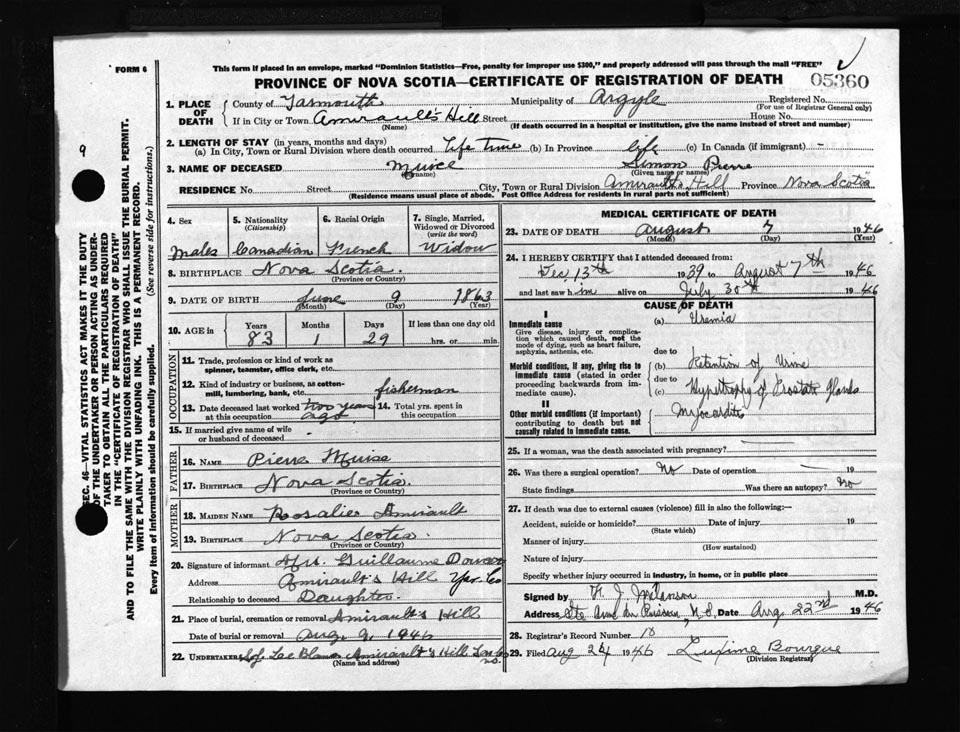 FORM 6
This form if placed in an envelope, marked "Dominion Statistics—Free, penalty for improper use $300," and properly addressed will pass through the mail "FREE"
PROVINCE OF NOVA SCOTIA—CERTIFICATE OF REGISTRATION OF DEATH
05360
1. PLACE OF DEATH
County of Yarmouth Municipality of Argyle Registered No.
(For use of Registrar General only)
If in City or Town Amirault's Hill Street House No.
(Name) (If death occurred in a hospital or institution, give the name instead of street and number)
2. LENGTH OF STAY (in years, months and days)
(a) In City, Town or Rural Division where death occurred Life time (b) In Province life (c) In Canada (if immigrant) -
3. NAME OF DECEASED Muise Simon Pierre
(Surname) (Given name or names)
RESIDENCE No. Street City, Town or Rural Division Amirault's Hill Province Nova Scotia
(Residence means usual place of abode. Post Office Address for residents in rural parts not sufficient)
4. Sex
Males
5. Nationality
(Citizenship)
Canadian
6. Racial Origin
French
7. Single, Married, Widowed or Divorced
(write the word)
Widow
8. BIRTHPLACE Nova Scotia.
(Province or Country)
9. DATE OF BIRTH June 9 1863
(Month) (Day) (Year)
10. AGE in
Years Months Days If less than one day old
83 1 29 hrs. or min.
OCCUPATION
11. Trade, profession or kind of work as spinner, teamster, office clerk, etc.
12. Kind of industry or business, as cotton-mill, lumbering, bank, etc. fisherman
13. Date deceased last worked at this occupation two years ago
14. Total yrs. spent in this occupation
15. If married give name of wife or husband of deceased
FATHER
16. NAME Pierre Muise
17. BIRTHPLACE Nova Scotia.
(Province or Country)
MOTHER
18. MAIDEN NAME Rosalie Amirault
19. BIRTHPLACE Nova Scotia.
(Province or Country)
20. Signature of informant Mrs. Guillaume
Address Amirault's Hill Yar. Co
Relationship to deceased Daughter.
21. Place of burial, cremation or removal Amirault's Hill
Date of burial or removal Aug 9, 1946
22. UNDERTAKER Le Blanc Amirault's Hill
(Name and address)
MEDICAL CERTIFICATE OF DEATH
23. DATE OF DEATH August 7 1946
(Month) (Day) (Year)
24. I HEREBY CERTIFY that I attended deceased from:
13th 1939 to August 7th 1946
and last saw him alive on July 30th 1946
CAUSE OF DEATH
I
Immediate cause
Give disease, injury or complication which caused death, not the mode of dying, such as heart failure, asphyxia, asthenia, etc.
(a) Uremia
due to
Morbid conditions, if any, giving rise to immediate cause (stated in order proceeding backwards from immediate cause).
(b) Retention of Urine
due to
(c) Hypertrophy of Prostate Glands
II
Other morbid conditions (if important) contributing to death but not causally related to immediate cause.
Myocarditis
25. If a woman, was the death associated with pregnancy?
26. Was there a surgical operation? No Date of operation 19
State findings Was there an autopsy? No
27. If death was due to external causes (violence) fill in also the following:—
Accident, suicide or homicide? Date of injury 19
(State which)
Manner of injury
(How sustained)
Nature of injury
Specify whether injury occurred in industry, in home, or in public place
Signed by Melanson M.D.
Address Ste Anne du Ruisseau, N.S. Date Aug. 22nd 1946
28. Registrar's Record Number 18
29. Filed Aug 24 1946 Bourque
(Division Registrar)
9
SEC. 46—VITAL STATISTICS ACT MAKES IT THE DUTY OF THE UNDERTAKER OR PERSON ACTING AS UNDERTAKER TO OBTAIN ALL THE PARTICULARS REQUIRED IN THE "CERTIFICATE OF REGISTRATION OF DEATH" AND TO FILE THE SAME WITH THE DIVISION REGISTRAR WHO SHALL ISSUE THE BURIAL PERMIT.
WRITE PLAINLY WITH UNFADING INK—THIS IS A PERMANENT RECORD.
Every item of information should be carefully supplied. (See reverse side for instructions.)